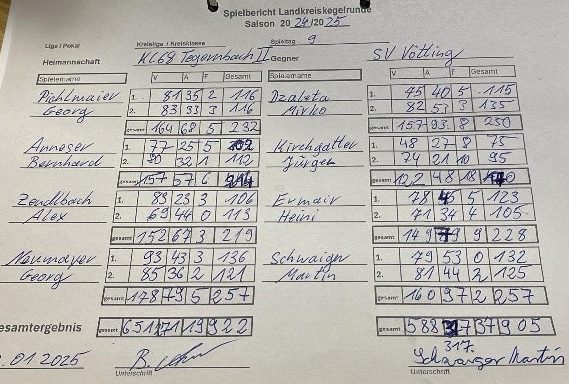 Spielbericht Landkreiskegelrunde
Saison 20 24 /20 25
Liga / Pokal Kreisliga / Kreisklasse Spieltag 9
Heimannschaft KC68 Tegernbach II Gegner SV Vötting
Spielername V A F Gesamt Spielername V A F Gesamt
Pichlmaier 1. 81 35 2 116 Dzaleta 1. 75 40 5 115
Georg 2. 83 33 3 116 Mirko 2. 82 53 3 135
gesamt 164 68 5 232 gesamt 157 93 8 250
Anneser 1. 77 25 5 102 Kirchgatter 1. 48 27 8 75
Bernhard 2. 80 32 1 112 Jürgen 2. 74 21 10 95
gesamt 157 57 6 214 gesamt 122 48 18 170
Zendlbach 1. 83 23 3 106 Ermair 1. 78 45 5 123
Alex 2. 69 44 0 113 Heini 2. 71 34 4 105
gesamt 152 67 3 219 gesamt 149 79 9 228
Neumayer 1. 93 43 3 136 Schwaiger 1. 79 53 0 132
Georg 2. 85 36 2 121 Martin 2. 81 44 2 125
gesamt 178 79 5 257 gesamt 160 97 2 257
esamtergebnis gesamt 651 271 19 922 gesamt 588 317 37 905
317.
.01.2025 Schwaiger Martin
Unterschrift Unterschrift